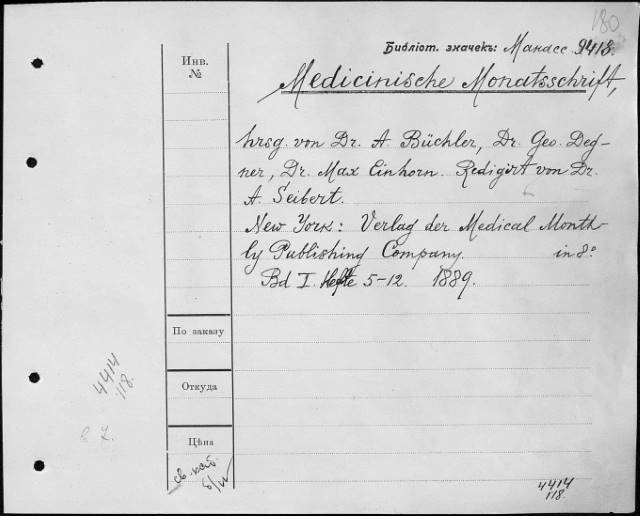 180
Библіот. значекъ: Манасс. 9418.
Инв.
№
Medicinische Monatsschrift,
hrsg. von Dr. A. Büchler, Dr. Geo. Deg-
ner, Dr. Max Einhorn. Redigirt von Dr.
A. Seibert.
New York: Verlag der Medical Month-
ly Publishing Company. in 8°
Bd I. Hefte 5-12. 1889.
По заказу
4414
118.
Откуда
Цѣна
4414
118.